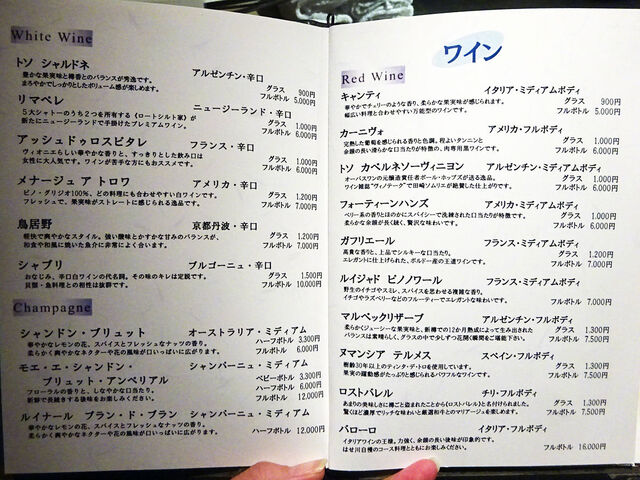 White Wine
トソ シャルドネ
アルゼンチン・辛口
豊かな果実味と樽香とのバランスが秀逸です。
まろやかでしっかりとしたボリューム感が楽しめます。
グラス 900円
フルボトル 5,000円
リマペレ
ニュージーランド・辛口
5大シャトーのうち2つを所有する《ロートシルト家》が
新たにニュージーランドで手掛けたプレミアムワイン。
グラス 1,000円
フルボトル 6,000円
アッシュドゥロスピタレ
フランス・辛口
ヴィオニエらしい華やかな香りと、すっきりとした飲み口は
女性に大人気です。ワインが苦手な方にもおススメです。
グラス 1,000円
フルボトル 6,000円
メナージュ ア トロワ
アメリカ・辛口
ピノ・グリジオ100%、どの料理にも合わせやすい白ワインです。
フレッシュで、果実味がストレートに感じられる逸品です。
グラス 1,200円
フルボトル 7,000円
鳥居野
京都丹波・辛口
軽快で爽やかなスタイル。強い酸味とかすかな甘みのバランスが、
和食や和風に焼いた魚介に非常によく合います。
グラス 1,200円
フルボトル 7,000円
シャブリ
ブルゴーニュ・辛口
おなじみ、辛口白ワインの代名詞。その味のキレは定説です。
貝類・魚料理との相性は抜群です。
グラス 1,500円
フルボトル 10,000円
Champagne
シャンドン・ブリュット
オーストラリア・ミディアム
華やかなレモンの花、スパイスとフレッシュなナッツの香り。
柔らかく爽やかなネクターや花の風味が口いっぱいに広がります。
ハーフボトル 3,300円
フルボトル 6,000円
モエ・エ・シャンドン・
ブリュット・アンペリアル
シャンパーニュ・ミディアム
フローラルの香りと、しなやかな口当たり。
新鮮で長続きする後味をお楽しみください。
ベビーボトル 3,300円
ハーフボトル 6,000円
フルボトル 12,000円
ルイナール ブラン・ド・ブラン
シャンパーニュ・ミディアム
華やかなレモンの花、スパイスとフレッシュなナッツの香り。
柔らかく爽やかなネクターや花の風味が口いっぱいに広がります。
ハーフボトル 12,000円
ワイン
Red Wine
キャンティ
イタリア・ミディアムボディ
華やかでチェリーのような香り、柔らかな果実味が感じられます。
幅広い料理と合わせやすい万能型のワインです。
グラス 900円
フルボトル 5,000円
カーニヴォ
アメリカ・フルボディ
完熟した葡萄を感じられる香りと色調。程よいタンニンと
余韻の長い滑らかな口当たりが特徴の、肉専用黒ワインです。
グラス 1,000円
フルボトル 6,000円
トソ カベルネソーヴィニヨン
アルゼンチン・ミディアムボディ
オーパスワンの元醸造責任者ポール・ホッブズが送る逸品。
ワイン雑誌“ヴィノテーク”で田崎ソムリエが絶賛した仕上がりです。
グラス 1,000円
フルボトル 6,000円
フォーティーンハンズ
アメリカ・ミディアムボディ
ベリー系の香りとほのかにスパイシーで洗練された口当たりが特徴です。
柔らかな余韻が長く続く、贅沢な味わいです。
グラス 1,000円
フルボトル 6,000円
ガフリエール
フランス・ミディアムボディ
高貴な香りと、上品でシルキーな口当たり。
エレガントに仕上げられた、ボルドー産の王道ワインです。
グラス 1,200円
フルボトル 7,000円
ルイジャド ピノノワール
フランス・ミディアムボディ
野生のイチゴやスミレ、スパイスを思わせる複雑な香り。
イチゴやラズベリーなどのフルーティーでエレガントな味わいです。
フルボトル 7,000円
マルベックリザーブ
アルゼンチン・フルボディ
柔らかくジューシーな果実味と、新樽での12か月熟成によって生み出された
バランスは素晴らしく、グラスの中で少しずつ花開く瞬間をご堪能下さい。
グラス 1,300円
フルボトル 7,500円
ヌマンシア テルメス
スペイン・フルボディ
樹齢30年以上のティンタ・デ・トロを使用しています。
果実の躍動感がたっぷりと感じられるパワフルなワインです。
グラス 1,300円
フルボトル 7,500円
ロストバレル
チリ・フルボディ
あまりの美味しさに樽ごと盗まれたことから《ロストバレル》と名付けられました。
驚くほど濃厚でリッチな味わいと厳選和牛とのマリアージュを楽しめます。
グラス 1,300円
フルボトル 7,500円
バローロ
イタリア・フルボディ
イタリアワインの王様。力強く、余韻の長い後味が印象的です。
はせ川自慢のコース料理とともにお楽しみください。
フルボトル 16,000円